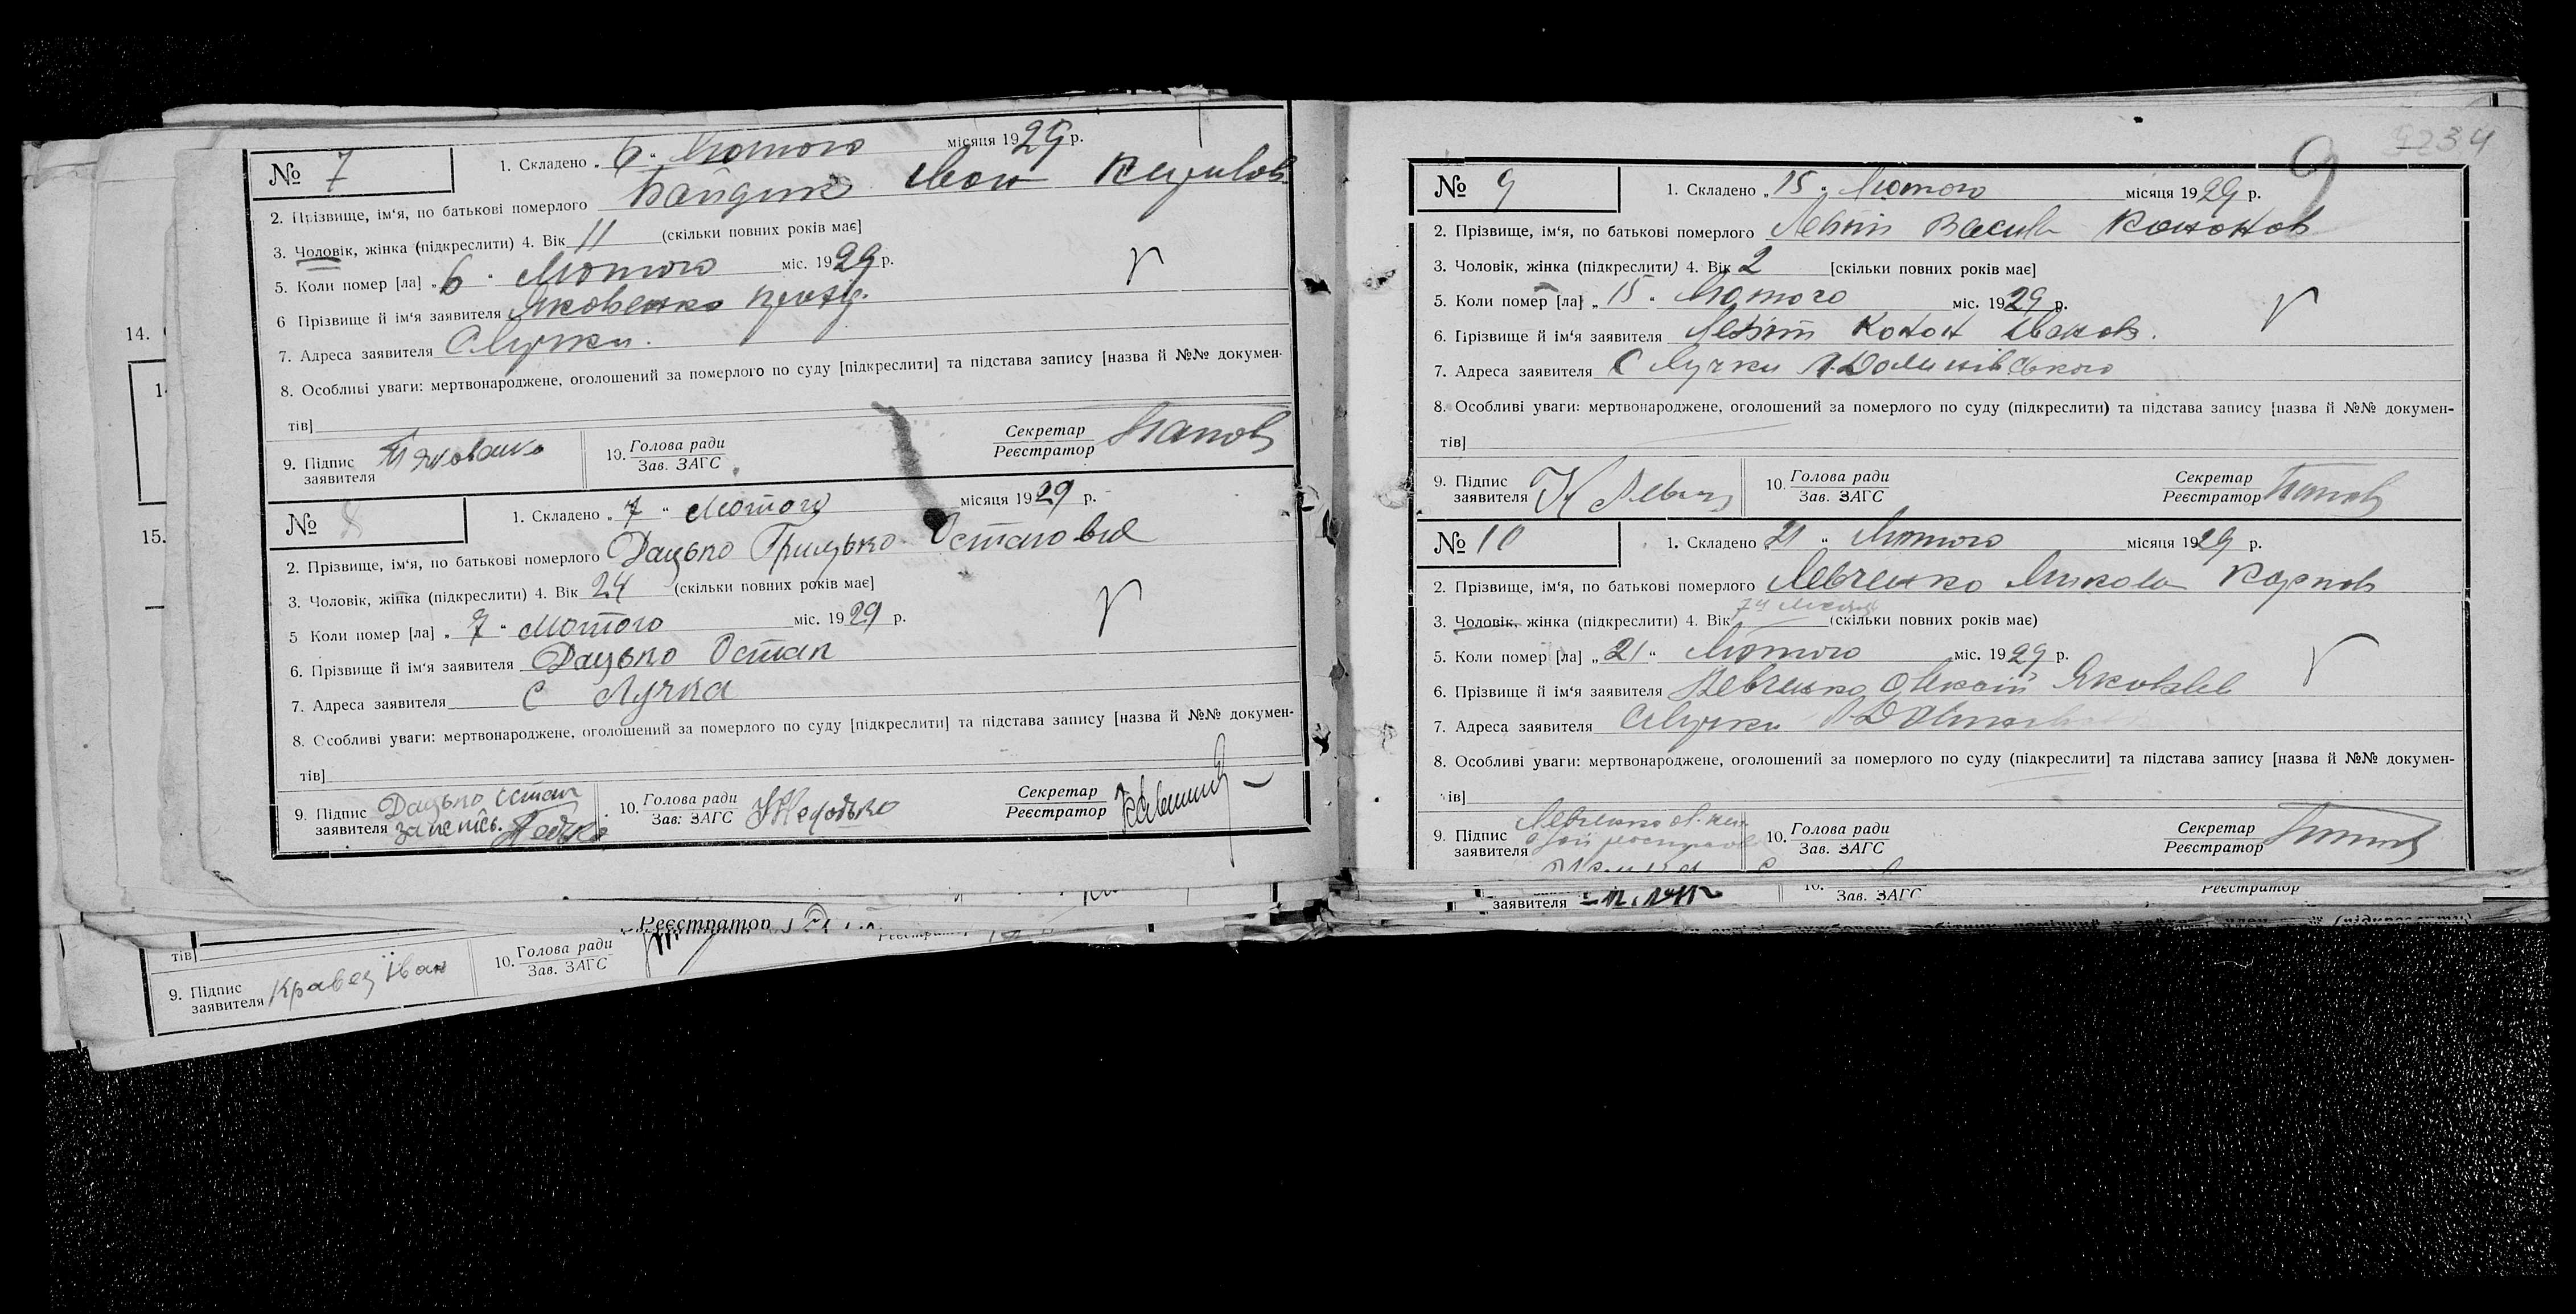 № 7
1. Складено „ 6 “ Лютого місяця 1929 р.
2. Прізвище, ім‘я, по батькові померлого Байдик Іван Кирилов
3. Чоловік, жінка (підкреслити) 4. Вік 11 (скільки повних років має]
5. Коли помер [ла] „ 6 “ Лютого міс. 1929 р.
6 Прізвище й ім‘я заявителя Яковенко
7. Адреса заявителя С Лучки.
8. Особливі уваги: мертвонароджене, оголошений за померлого по суду [підкреслити] та підстава запису [назва й №№ докумен-
тів]
9. Підпис заявителя П Яковенко
10. Голова ради
Зав. ЗАГС
Секретар
Реєстратор
№ 8
1. Складено „ 7 “ Лютого місяця 1929 р.
2. Прізвище, ім‘я, по батькові померлого Дацько Грицько Остапович
3. Чоловік, жінка (підкреслити) 4. Вік 24 (скільки повних років має]
5 Коли помер [ла] „ 7 “ Лютого міс. 1929 р.
6. Прізвище й ім‘я заявителя Дацько Остап
7. Адреса заявителя С Лучка
8. Особливі уваги: мертвонароджене, оголошений за померлого по суду [підкреслити] та підстава запису [назва й №№ докумен-
тів]
9. Підпис заявителя Дацько Остап
10. Голова ради
Зав: ЗАГС
Секретар
Реєстратор
Реєстратор
тів]
9. Підпис заявителя Кравец Іван
10. Голова ради
Зав. ЗАГС
14.
15.
234
9
№ 9
1. Складено „ 15 “ Лютого місяця 1929 р.
2. Прізвище, ім‘я, по батькові померлого Левіт Василь Кононов
3. Чоловік, жінка (підкреслити) 4. Вік 2 [скільки повних років має]
5. Коли помер [ла] „ 15 “ Лютого міс. 1929 р.
6. Прізвище й ім‘я заявителя Левіт Конон Іванов.
7. Адреса заявителя С Лучки
8. Особливі уваги: мертвонароджене, оголошений за померлого по суду (підкреслити) та підстава запису [назва й №№ докумен-
тів]
9. Підпис заявителя К Левіт
10. Голова ради
Зав. ЗАГС
Секретар
Реєстратор
№ 10
1. Складено „ 21 “ Лютого місяця 1929 р.
2. Прізвище, ім‘я, по батькові померлого Левченко Микола Карпов
3. Чоловік, жінка (підкреслити) 4. Вік (скільки повних років має)
5. Коли помер [ла] „ 21 “ Лютого міс. 1929 р.
6. Прізвище й ім‘я заявителя Левченко Олексій Яковлев
7. Адреса заявителя С Лучки
8. Особливі уваги: мертвонароджене, оголошений за померлого по суду (підкреслити] та підстава запису [назва й №№ докумен-
тів]
9. Підпис заявителя Левченко
10. Голова ради
Зав. ЗАГС
Секретар
Реєстратор
заявителя
10. Зав. ЗАГС
Реєстратор